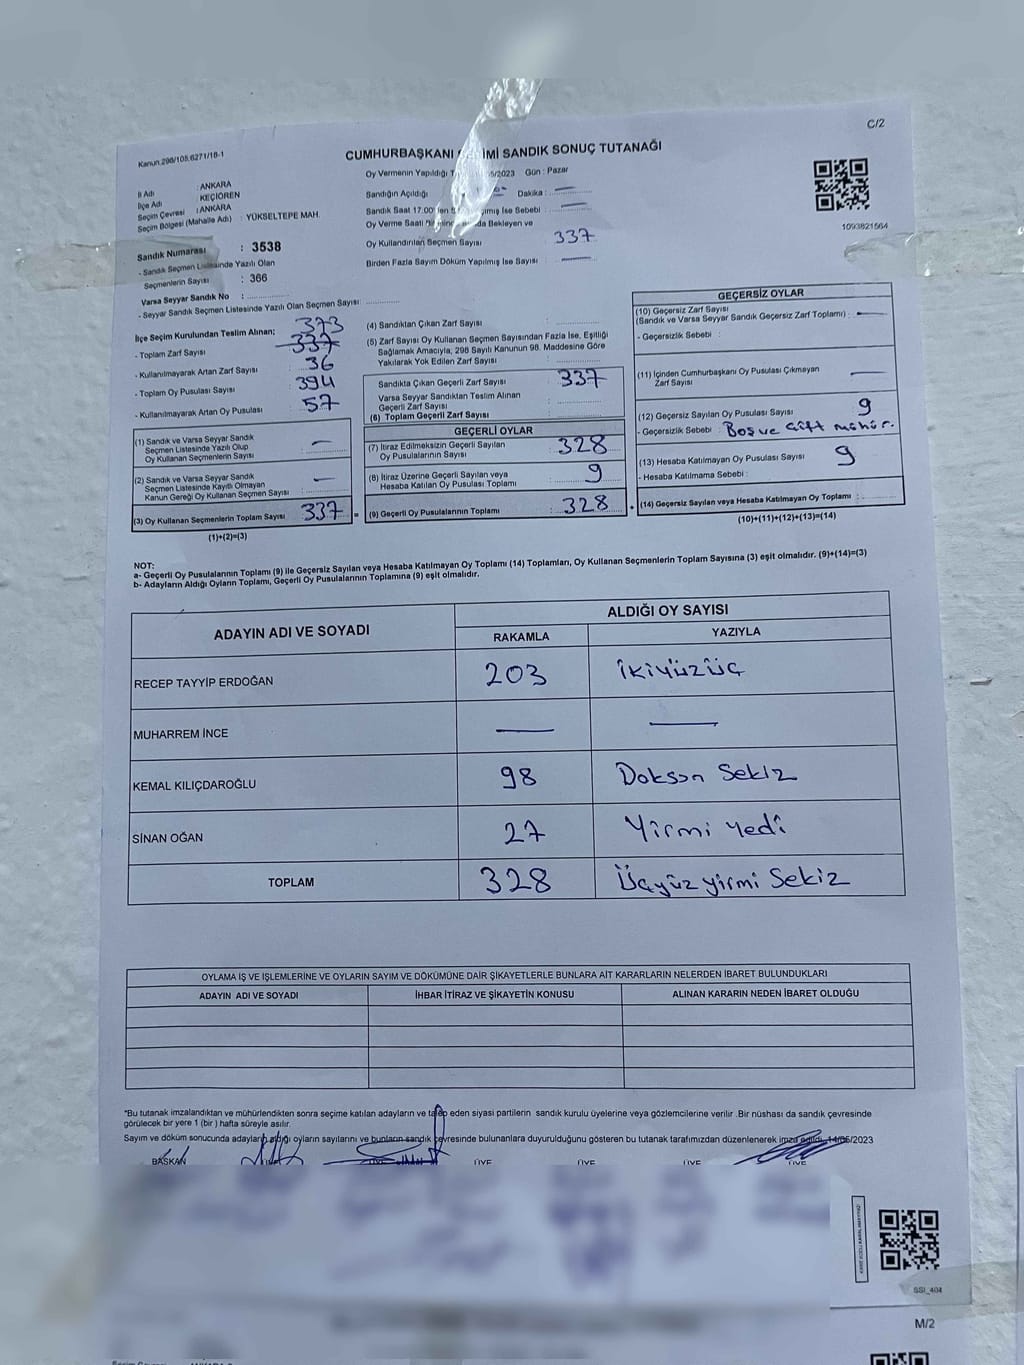 C/2
Kanun.298/105.6271/18-1
CUMHURBAŞKANI SANDIK SONUÇ TUTANAĞI
İl Adı : ANKARA
İlçe Adı : KEÇİÖREN
Seçim Çevresi : ANKARA
Seçim Bölgesi (Mahalle Adı) : YÜKSELTEPE MAH.
Sandık Numarası : 3538
- Sandık Seçmen Listesinde Yazılı Olan
Seçmenlerin Sayısı : 366
Varsa Seyyar Sandık No :
- Seyyar Sandık Seçmen Listesinde Yazılı Olan Seçmen Sayısı :
Oy Vermenin Yapıldığı 5/2023 Gün : Pazar
Sandığın Açıldığı Dakika : —
Sandık Saat 17.00' İse Sebebi : —
Oy Verme Saati Bekleyen ve
Oy Kullandırılan Seçmen Sayısı : 337
Birden Fazla Sayım Döküm Yapılmış İse Sayısı : —
1093821564
İlçe Seçim Kurulundan Teslim Alınan; 373
- Toplam Zarf Sayısı 337
- Kullanılmayarak Artan Zarf Sayısı 36
- Toplam Oy Pusulası Sayısı 394
- Kullanılmayarak Artan Oy Pusulası 57
(1) Sandık ve Varsa Seyyar Sandık
Seçmen Listesinde Yazılı Olup
Oy Kullanan Seçmenlerin Sayısı : —
(2) Sandık ve Varsa Seyyar Sandık
Seçmen Listesinde Kayıtlı Olmayan
Kanun Gereği Oy Kullanan Seçmen Sayısı : —
(3) Oy Kullanan Seçmenlerin Toplam Sayısı : 337 =
(1)+(2)=(3)
(4) Sandıktan Çıkan Zarf Sayısı :
(5) Zarf Sayısı Oy Kullanan Seçmen Sayısından Fazla İse, Eşitliği
Sağlamak Amacıyla, 298 Sayılı Kanunun 98. Maddesine Göre
Yakılarak Yok Edilen Zarf Sayısı :
Sandıkta Çıkan Geçerli Zarf Sayısı : 337
Varsa Seyyar Sandıktan Teslim Alınan
Geçerli Zarf Sayısı :
(6) Toplam Geçerli Zarf Sayısı :
GEÇERLİ OYLAR
(7) İtiraz Edilmeksizin Geçerli Sayılan
Oy Pusulalarının Sayısı : 328
(8) İtiraz Üzerine Geçerli Sayılan veya
Hesaba Katılan Oy Pusulası Toplamı : 9
(9) Geçerli Oy Pusulalarının Toplamı : 328 +
GEÇERSİZ OYLAR
(10) Geçersiz Zarf Sayısı
(Sandık ve Varsa Seyyar Sandık Geçersiz Zarf Toplamı) : —
- Geçersizlik Sebebi :
(11) İçinden Cumhurbaşkanı Oy Pusulası Çıkmayan
Zarf Sayısı : —
(12) Geçersiz Sayılan Oy Pusulası Sayısı : 9
- Geçersizlik Sebebi : Boş ve Çift mühür.
(13) Hesaba Katılmayan Oy Pusulası Sayısı : 9
- Hesaba Katılmama Sebebi :
(14) Geçersiz Sayılan veya Hesaba Katılmayan Oy Toplamı :
(10)+(11)+(12)+(13)=(14)
NOT:
a- Geçerli Oy Pusulalarının Toplamı (9) ile Geçersiz Sayılan veya Hesaba Katılmayan Oy Toplamı (14) Toplamları, Oy Kullanan Seçmenlerin Toplam Sayısına (3) eşit olmalıdır. (9)+(14)=(3)
b- Adayların Aldığı Oyların Toplamı, Geçerli Oy Pusulalarının Toplamına (9) eşit olmalıdır.
ADAYIN ADI VE SOYADI ALDIĞI OY SAYISI
RAKAMLA YAZIYLA
RECEP TAYYİP ERDOĞAN 203 ikiyüzüç
MUHARREM İNCE — —
KEMAL KILIÇDAROĞLU 98 Doksan Sekiz
SİNAN OĞAN 27 Yirmi yedi
TOPLAM 328 Üçyüz yirmi Sekiz
OYLAMA İŞ VE İŞLEMLERİNE VE OYLARIN SAYIM VE DÖKÜMÜNE DAİR ŞİKAYETLERLE BUNLARA AİT KARARLARIN NELERDEN İBARET BULUNDUKLARI
ADAYIN ADI VE SOYADI İHBAR İTİRAZ VE ŞİKAYETİN KONUSU ALINAN KARARIN NEDEN İBARET OLDUĞU
*Bu tutanak imzalandıktan ve mühürlendikten sonra seçime katılan adayların ve talep eden siyasi partilerin sandık kurulu üyelerine veya gözlemcilerine verilir .Bir nüshası da sandık çevresinde
görülecek bir yere 1 (bir ) hafta süreyle asılır.
Sayım ve döküm sonucunda adayların aldığı oyların sayılarını ve bunların sandık çevresinde bulunanlara duyurulduğunu gösteren bu tutanak tarafımızdan düzenlenerek imza edildi. 14/05/2023
BAŞKAN ÜYE ÜYE ÜYE ÜYE
SSI_404
M/2